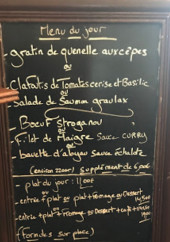 Menu du jour
- gratin de quenelle aux cèpes
ou
- Clafoutis de Tomates cerise et Basilic
ou
- Salade de Saumon gravlax
- Boeuf Stroganov
ou
- filet de Maigre Sauce CURRY
ou
- bavette d'aloyau Sauce échalote
supplément de 6.00€
- plat du jour :
- entrée + plat ou plat + fromage ou Dessert
- entrée + plat + fromage ou Dessert
(formules sur place)